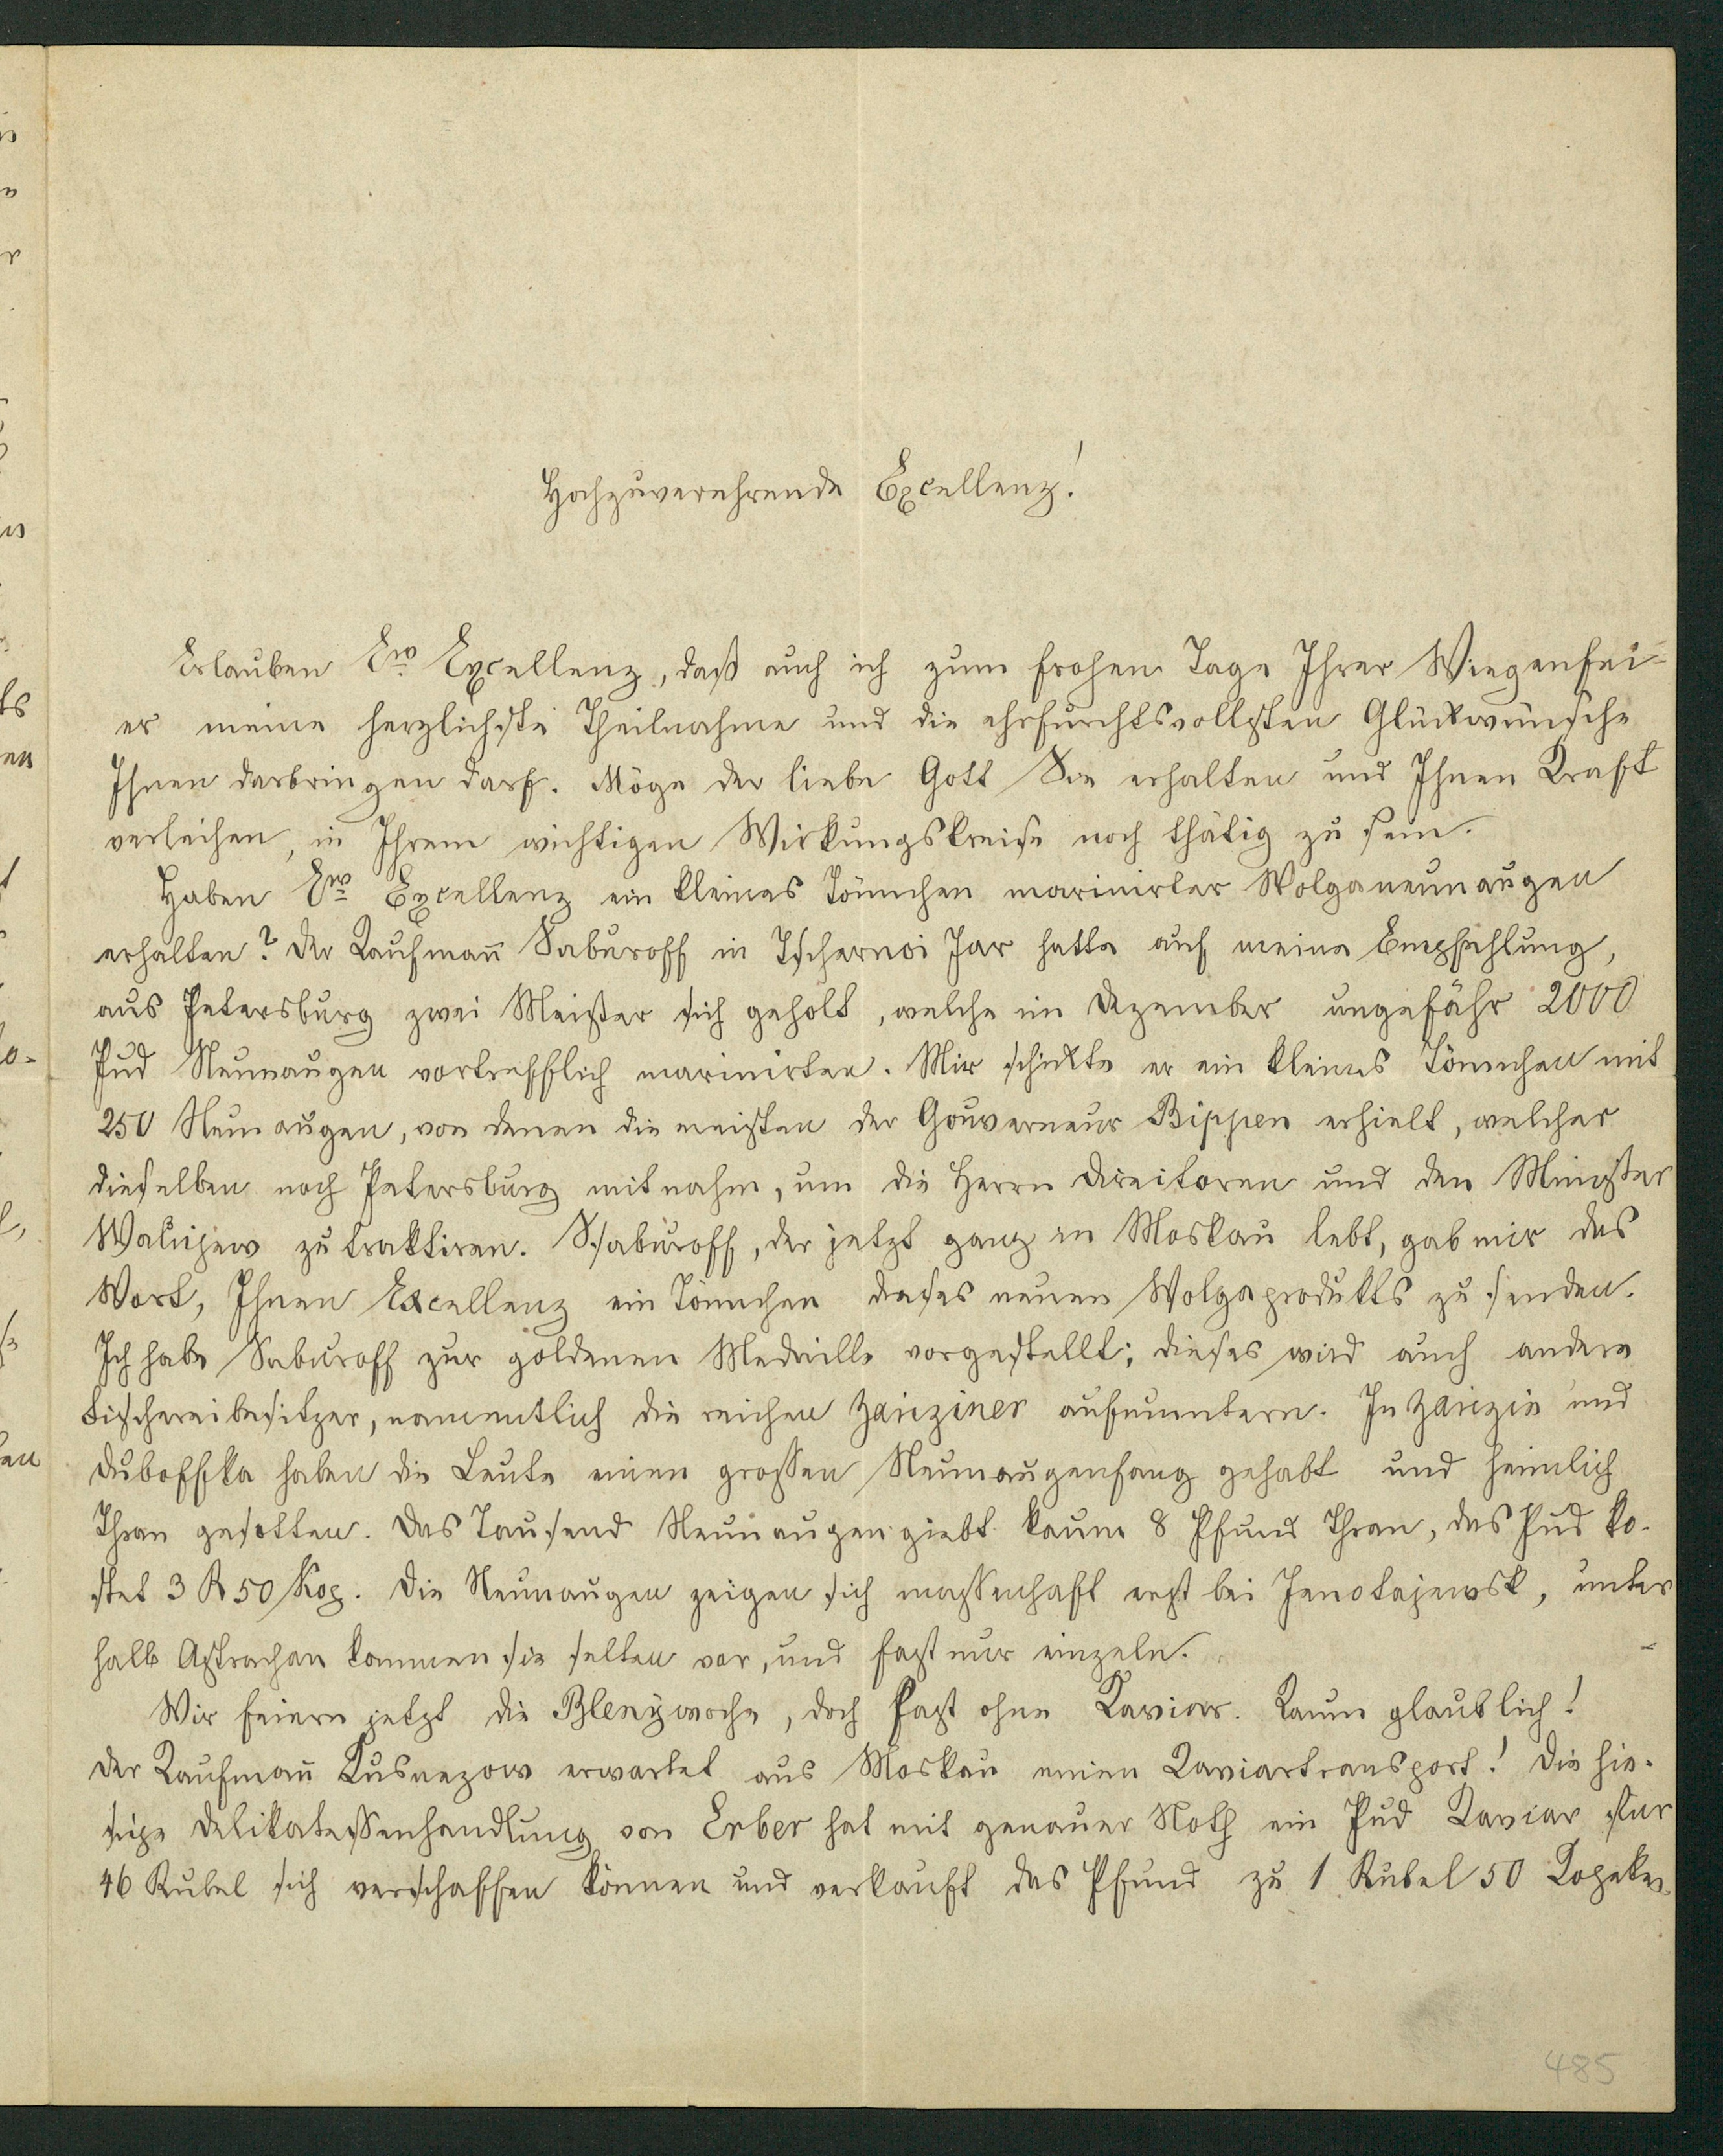 Hochzuverehrende Excellenz!
Erlauben Ew Excellenz, daß auch ich zum frohen Tage Ihrer Wiegenfei-
er meine herzlichste Theilnahme und die ehrfurchtsvollsten Glückwünsche
Ihnen darbringen darf. Möge der liebe Gott Sie erhalten und Ihnen Kraft
verleihen, in Ihrem wichtigen Wirkungskreise noch thätig zu sein.
Haben Ew Excellenz ein kleines Tönnchen marinirter Wolganeunaugen
erhalten? Der Kaufmann̄ Saburoff in Tschernoi Jar hatte auf meine Empfehlung,
aus Petersburg zwei Meister sich geholt, welche im Dezember ungefähr 2000
Pud Neunaugen vortrefflich marinirten. Mir schickte er ein kleines Tönnchen mit
250 Neunaugen, von denen die meisten der Gouverneur Bippen erhielt, welcher
dieselben nach Petersburg mitnahm, um die Herrn Direitoren und den Minister
Walujew zu traktiren. Ssaburoff, der jetzt ganz in Moskau lebt, gab mir das
Wort, Ihnen Excellenz ein Tönnchen dieses neuen Wolgaprodukts zu senden.
Ich habe Saburoff zur goldenen Medaille vorgestellt; dieses wird auch andere
Fischereibesitzer, namentlich die reichen Zariziner aufmuntern. In Zarizin und
Duboffka haben die Leute einen grossen Neunaugenfang gehabt und heimlich
Thran gesotten. Das Tausend Neunaugen giebt kaum 8 Pfund Thran, das Pud ko-
stet 3 R 50 Kop. Die Neunaugen zeigen sich massenhaft erst bei Jenotajewsk, unter
halb Astrachan kommen sie selten vor, und fast nur einzeln.
Wir feiern jetzt die Blenywoche, doch fast ohne Kaviar. Kaum glaublich!
Der Kaufman̄ Kusnezow erwartet aus Moskau einen Kaviartransport! Die hie-
sige Delikatessenhandlung von Erber hat mit genauer Noth ein Pud Kaviar für
46 Rubel sich verschaffen können und verkauft das Pfund zu 1 Rubel 50 Kopeken.
485